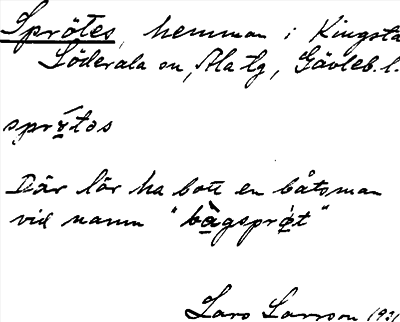 Sprötes, hemman i Kingsta
Söderala sn, Ala tg, Gävleb. l.
sprö́tos
Där lär ha bott en båtsman
vid namn "bågspröt"
Lars Larsson 1921